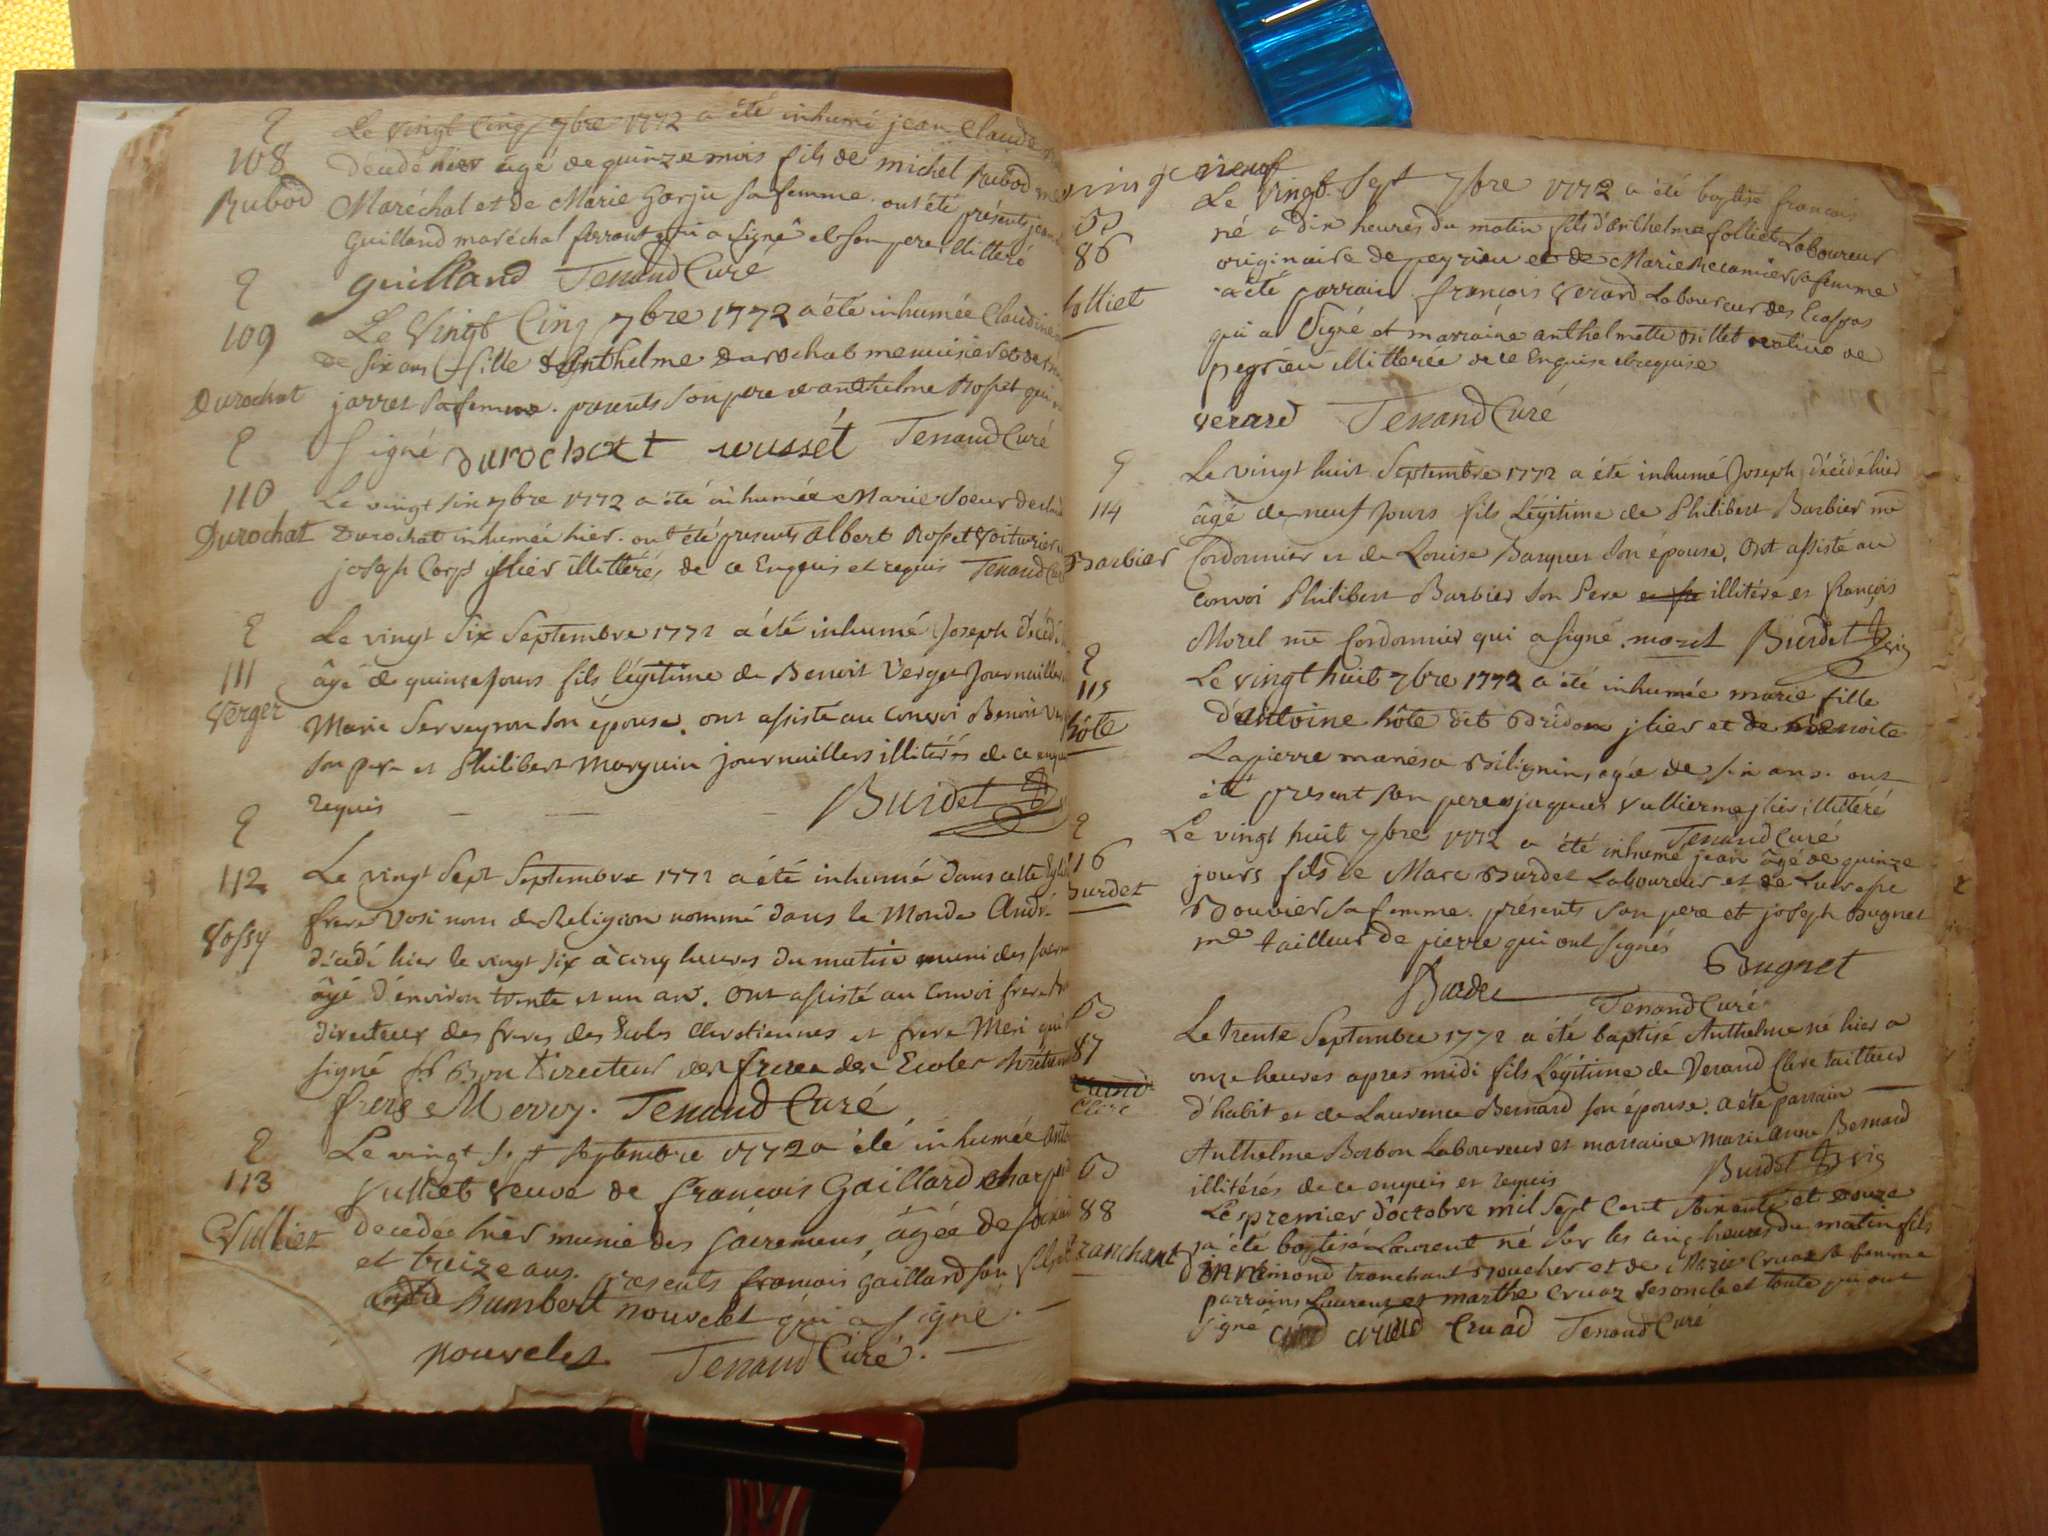 108
Rubod
Le vingt Cinq 7bre 1772 a été inhumé jean Claude
décédé hier âgé de quinze mois fils de michel Rubod me
Maréchal et de Marie Gorju sa femme. ont été présents
guilland maréchal ferrant qui a signé et son pere illitteré
guilland Tenand Curé
109
Durochat
Le Vingt Cinq 7bre 1772 a été inhumée Claudine
de six ans fille d'Anthelme Durochat menuisier et de
jarret sa femme. presents son pere et anthelme Rosset qui
signé durochat rousset Tenand Curé
110
Durochat
Le vingt six 7bre 1772 a été inhumée Marie soeur de
Durochat inhumée hier. ont été presents albert Rosset Voiturier
joseph Corps jllier illittérés de ce Enquis et requis Tenand
111
Verger
Le vingt Six Septembre 1772 a été inhumé Joseph décédé
âgé de quinse jours fils légitime de Benoit Verger Journaillier
Marie Serveyron son épouse. ont assisté au convoi Benoit
son pere et Philibert Marguin journailliers illitérés de ce
requis Burdet
112
Vossy
Le vingt Sept Septembre 1772 a été inhumé dans cette
frere Vosi nom de Religion nommé dans le Monde André
décédé hier le vingt six à cinq heures du matin muni des
âgé d'environ trente et un an. Ont assisté au Convoi frere
directeur des freres des Ecoles Chretiennes et frere Meri qui
signé f Bon Directeur des freres des Ecoles
frere Merry. Tenand Curé
113
Vulliet
Le vingt sept septembre 1772 a été inhumée
Vulliet veuve de francois Gaillard
decedée hier munie des sacremens, âgée de
et treize ans. presents francois gaillard son
Humbert nouvelet qui a signé.
nouvelet Tenand Curé.
vingt neuf
86
folliet
Le Vingt Sept 7bre 1772 a été baptisé francois
né a dix heures du matin fils d'anthelme folliet Laboureur
originaire de peyrieu et de Marie Recamier sa femme
a été parrain francois Verard Laboureur des Ecassas
qui a Signé et marraine anthelmette billet native de
peyrieu illitterée de ce Enquise et requise
verard Tenand Curé
114
Barbier
Le vingt huit Septembre 1772 a été inhumé Joseph décédé hier
âgé de neuf jours fils légitime de Philibert Barbier me
Cordonnier et de Louise Barquet son épouse. Ont assisté au
convoi Philibert Barbier son Pere illitére et françois
Morel me Cordonnier qui a signé. morel Burdet
115
hôte
Le vingt huit 7bre 1772 a été inhumée marie fille
d'antoine hôte dit Bridon jllier et de Benoite
Lapierre manesa Bilignin, agée de six ans. ont
été present son pere et jaques vullierme jllier illittéré
Tenand Curé
116
Burdet
Le vingt huit 7bre 1772 a été inhumé jean âgé de quinze
jours fils de Marc Burdet Laboureur et de
Bouvier sa femme. présents son pere et joseph Bugnet
me tailleur de pierre qui ont signés
Burde Bugnet
Tenand Curé
87
Clere
Le trente Septembre 1772 a été baptisé Anthelme né hier a
onze heures apres midi fils Légitime de Verand Clere tailleur
d'habit et de Laurence Bernard son épouse. a été parrain
Anthelme Borbon Laboureur et marraine Marie Anne Bernard
illitérés de ce enquis et requis Burdet
88
tranchant
Le premier d'octobre mil sept Cent soixante et douze
a été baptisé Laurent né sur les cinq heures du matin fils
tranchant Boucher et de Marie Cruaz sa femme
parrains Laurent et marthe Cruaz ses oncle et tante qui ont
signé cruad Tenand Curé